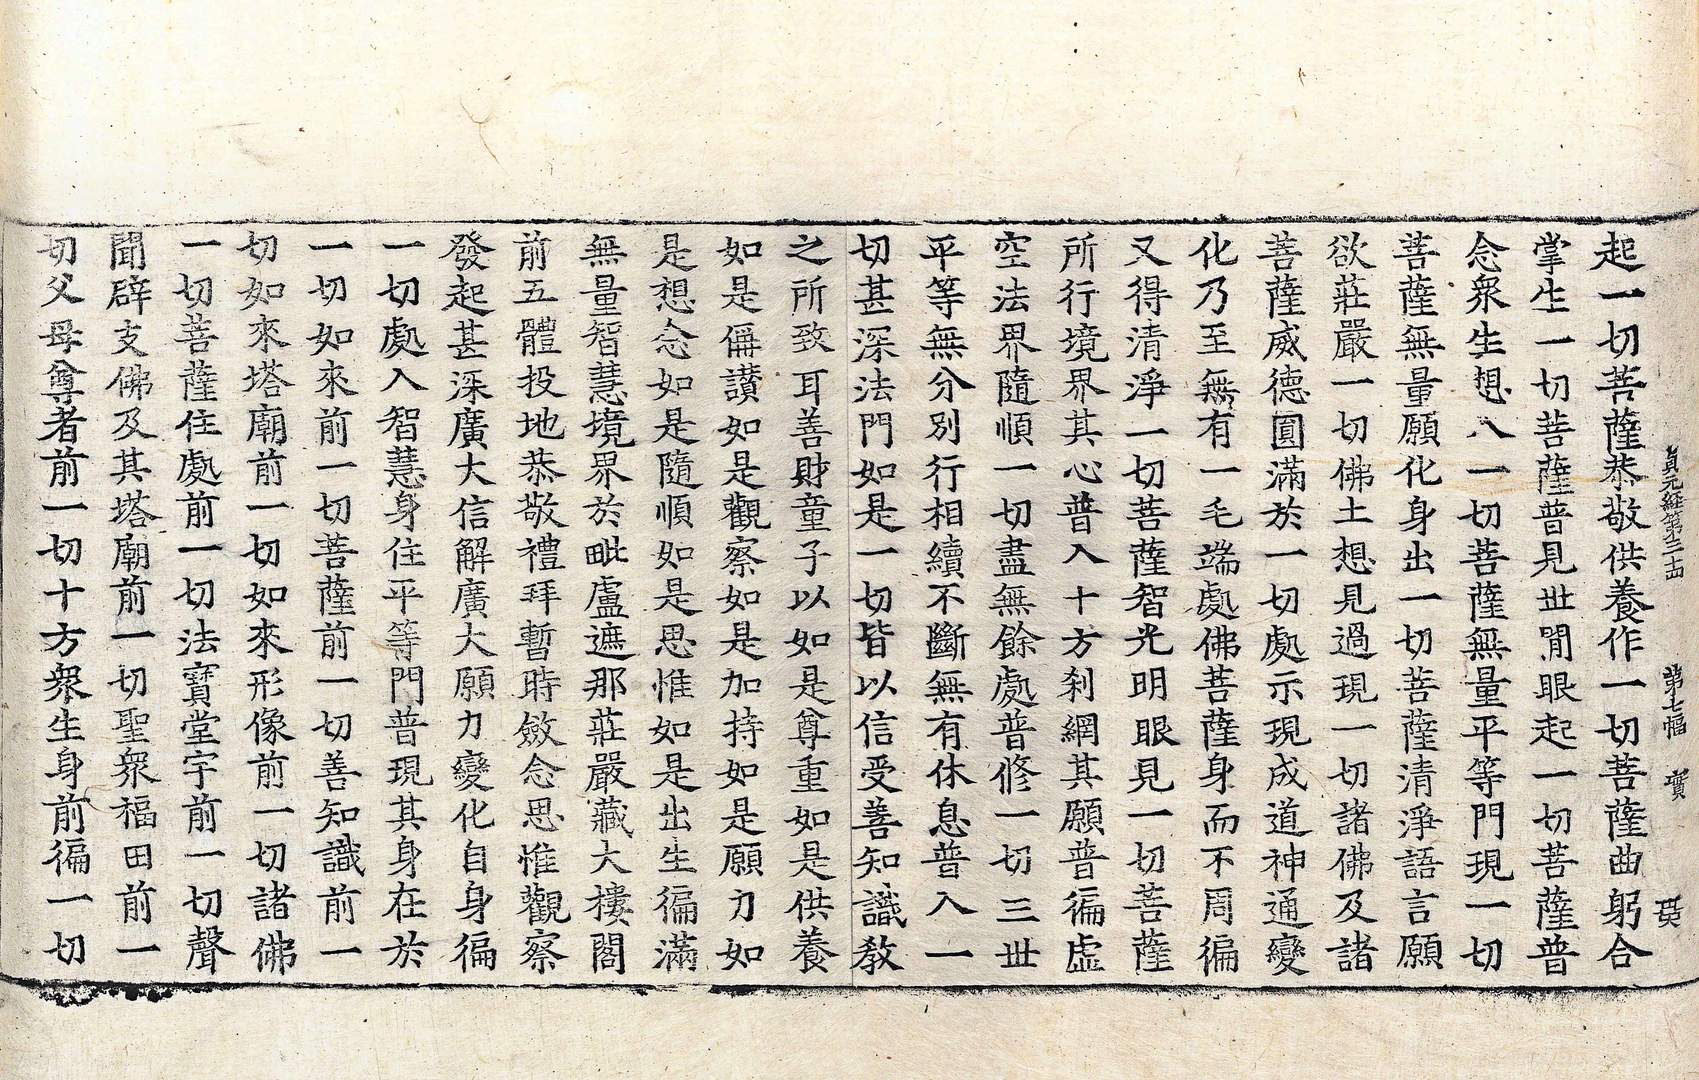 貞元經第三十四 第七幅 寶
起一切菩薩恭敬供養作一切菩薩曲躬合
掌生一切菩薩普見世間眼起一切菩薩普
念衆生想入一切菩薩無量平等門現一切
菩薩無量願化身出一切菩薩清淨語言願
欲莊嚴一切佛土想見過現一切諸佛及諸
菩薩威德圓滿於一切處示現成道神通變
化乃至無有一毛端處佛菩薩身而不周徧
又得清淨一切菩薩智光明眼見一切菩薩
所行境界其心普入十方刹網其願普徧虛
空法界隨順一切盡無餘處普修一切三世
平等無分別行相續不斷無有休息普入一
切甚深法門如是一切皆以信受善知識教
之所致耳善財童子以如是尊重如是供養
如是偁讃如是觀察如是加持如是願力如
是想念如是隨順如是思惟如是出生徧滿
無量智慧境界於毗盧遮那莊嚴藏大樓閣
前五體投地恭敬禮拜暫時斂念思惟觀察
發起甚深廣大信解廣大願力變化自身徧
一切處入智慧身住平等門普現其身在於
一切如來前一切菩薩前一切善知識前一
切如來塔廟前一切如來形像前一切諸佛
一切菩薩住處前一切法寶堂宇前一切聲
聞辟支佛及其塔廟前一切聖衆福田前一
切父母尊者前一切十方衆生身前徧一切